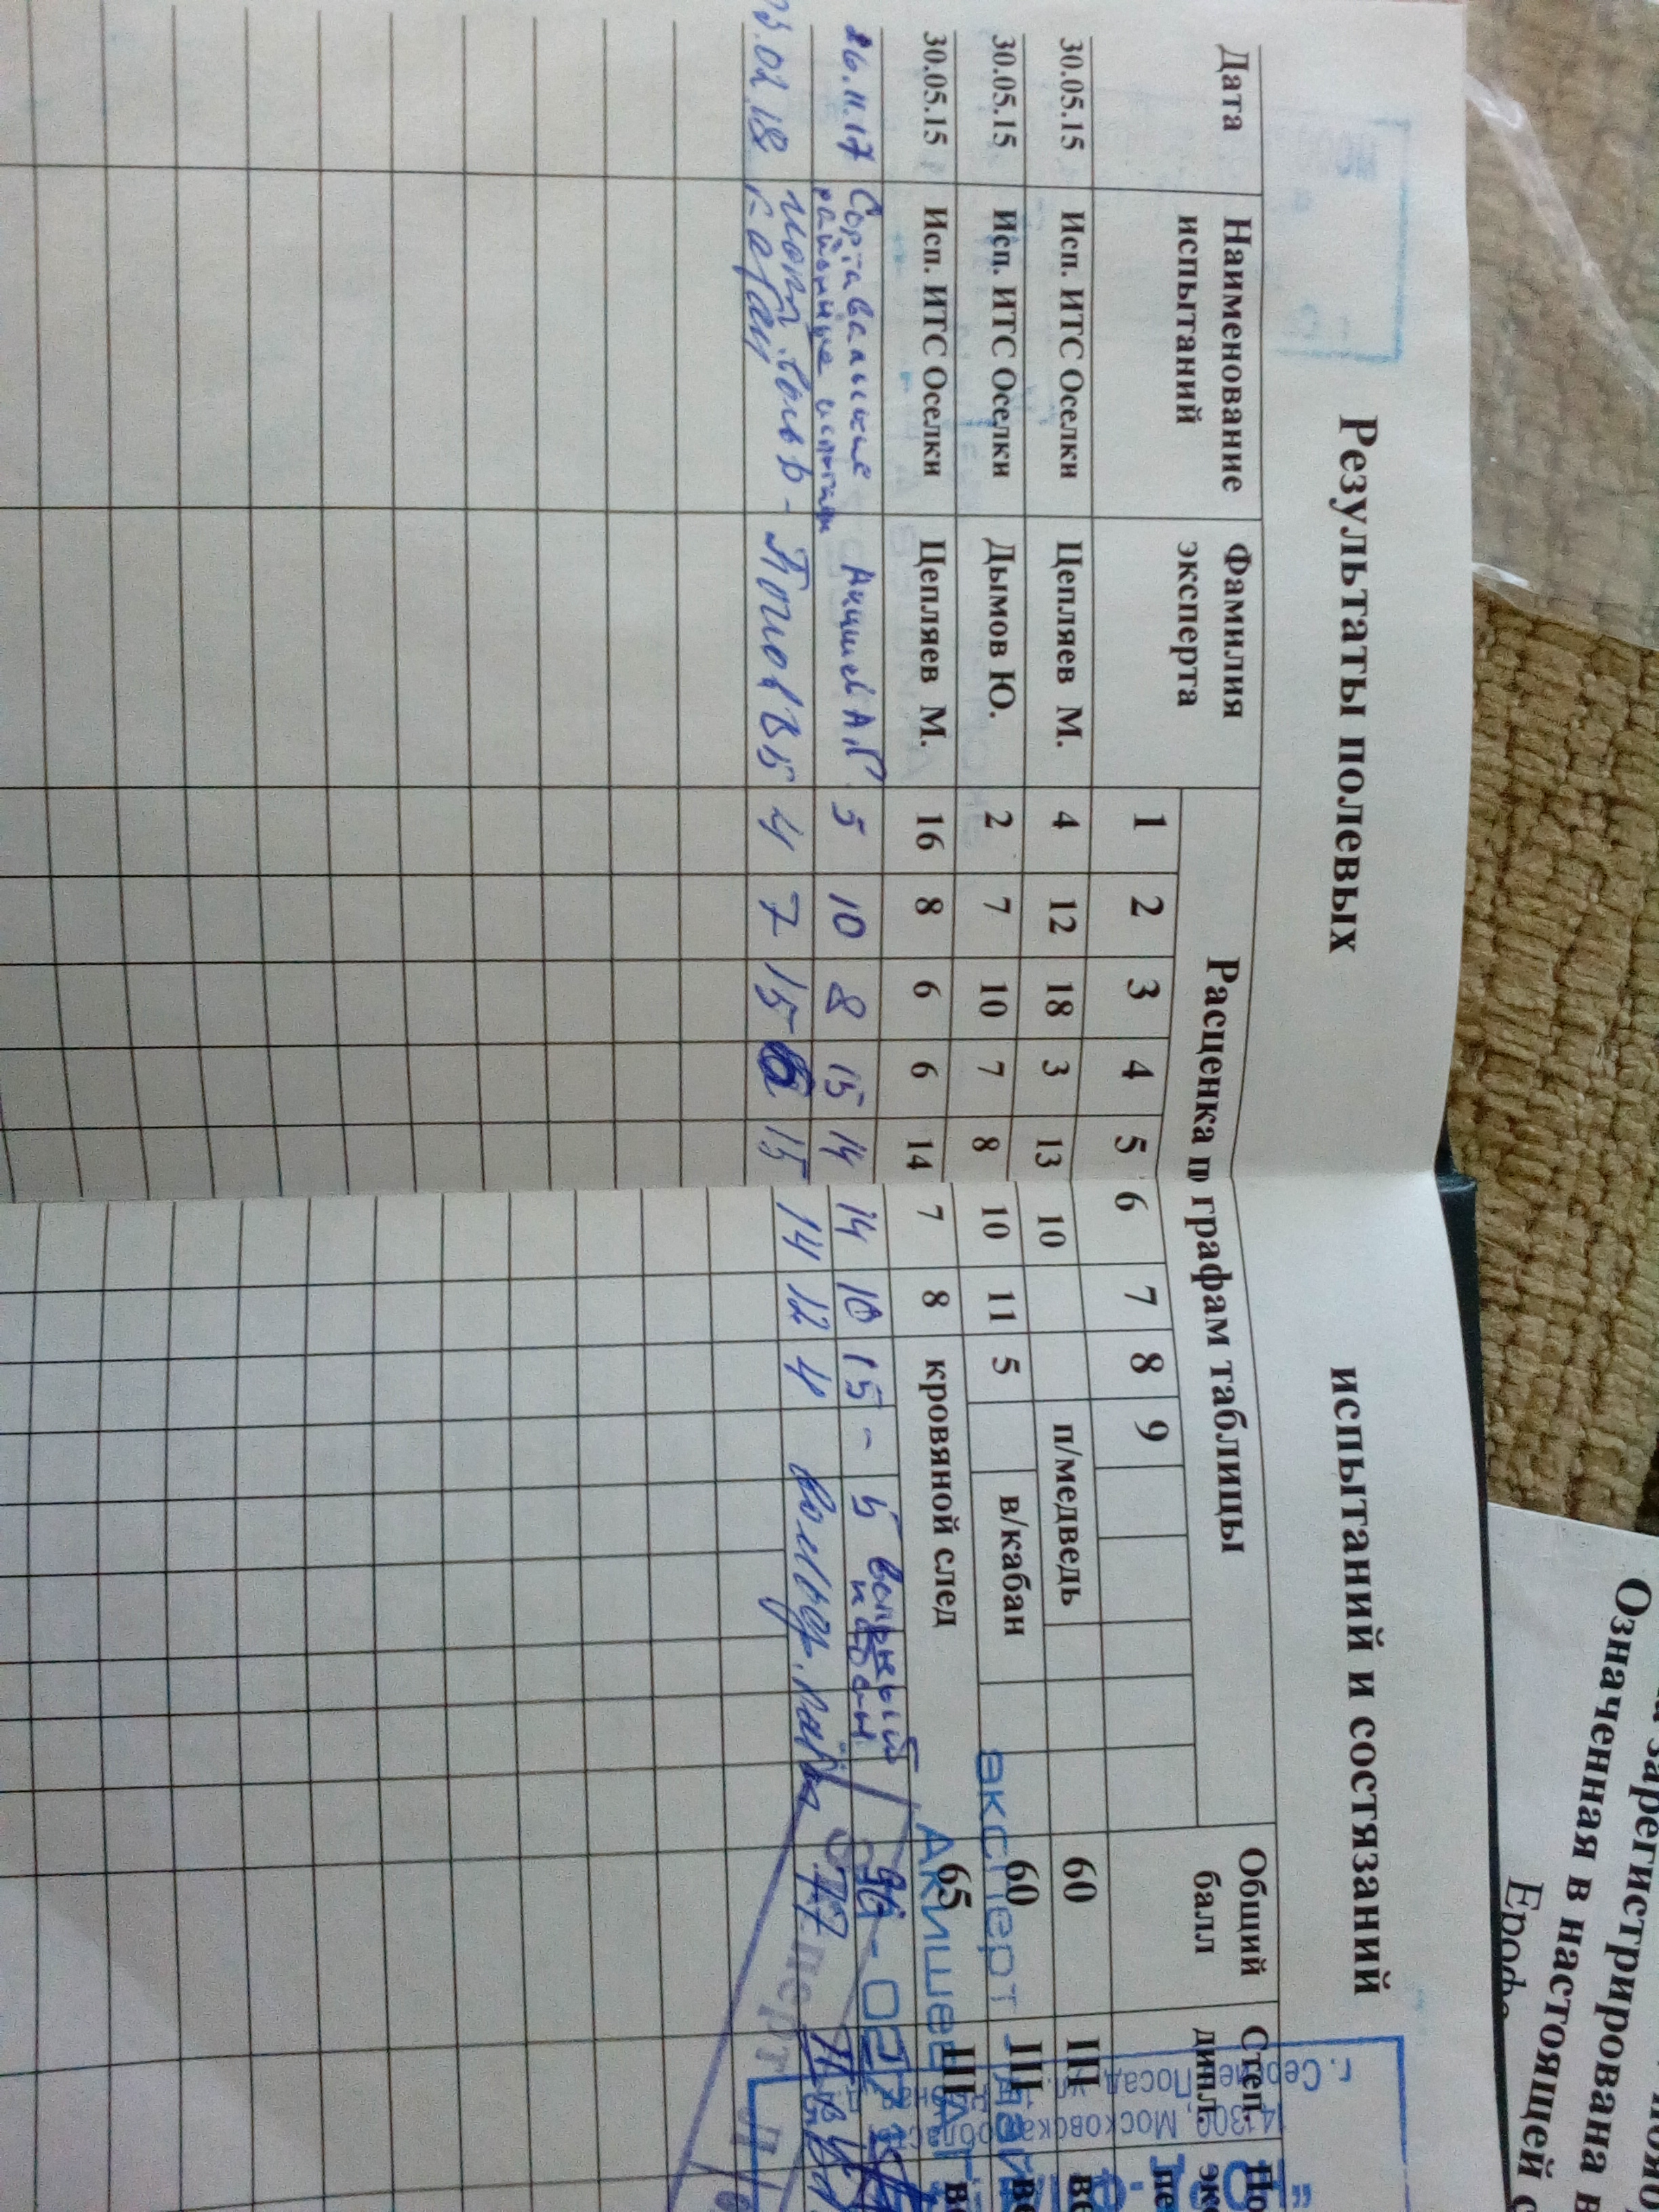 Результаты полевых испытаний и состязаний
Дата Наименование испытаний Фамилия эксперта Расценка по графам таблицы Общий балл Степ. дипл.
1 2 3 4 5 6 7 8 9
30.05.15 Исп. ИТС Оселки Цепляев М. 4 12 18 3 13 10 п/медведь 60 III
30.05.15 Исп. ИТС Оселки Дымов Ю. 2 7 10 7 8 10 11 5 в/кабан 60 III
30.05.15 Исп. ИТС Оселки Цепляев М. 16 8 6 6 14 7 8 кровяной след 65 III
26.11.17 Сортавальские районные Акишев А.Г. 5 10 8 15 14 14 10 15 - 5 вольный кабан 96
02.18 4 7 15 6 15 14 12 4 77
эксперт
Акишев А.Г.
г. Сергиев Посад, ул.
Московская область
зарегистрирована
Означенная в настоящей